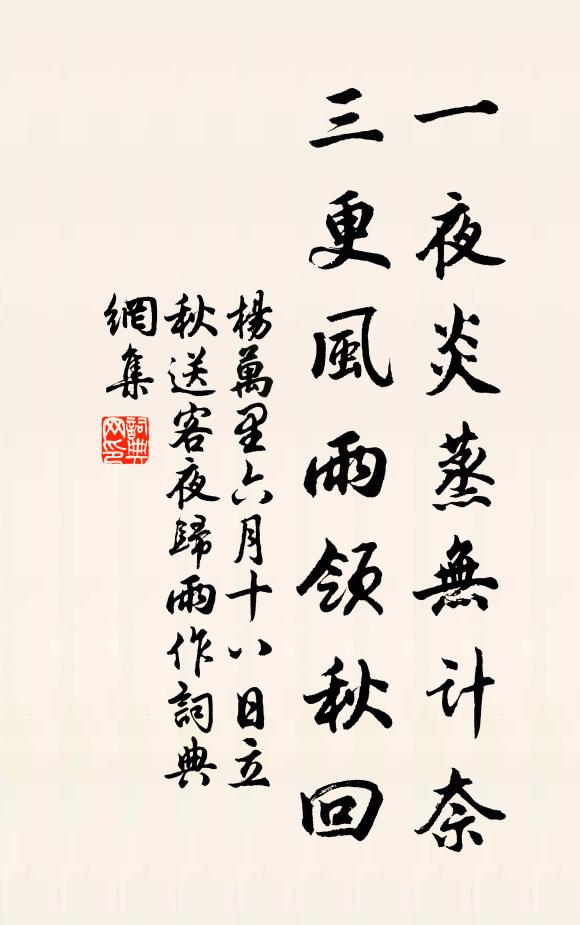 一夜炎蒸無计奈
三更風雨領秋回
楊萬里六月十八日立
秋送客夜歸雨作詞典
網集
詞典网印